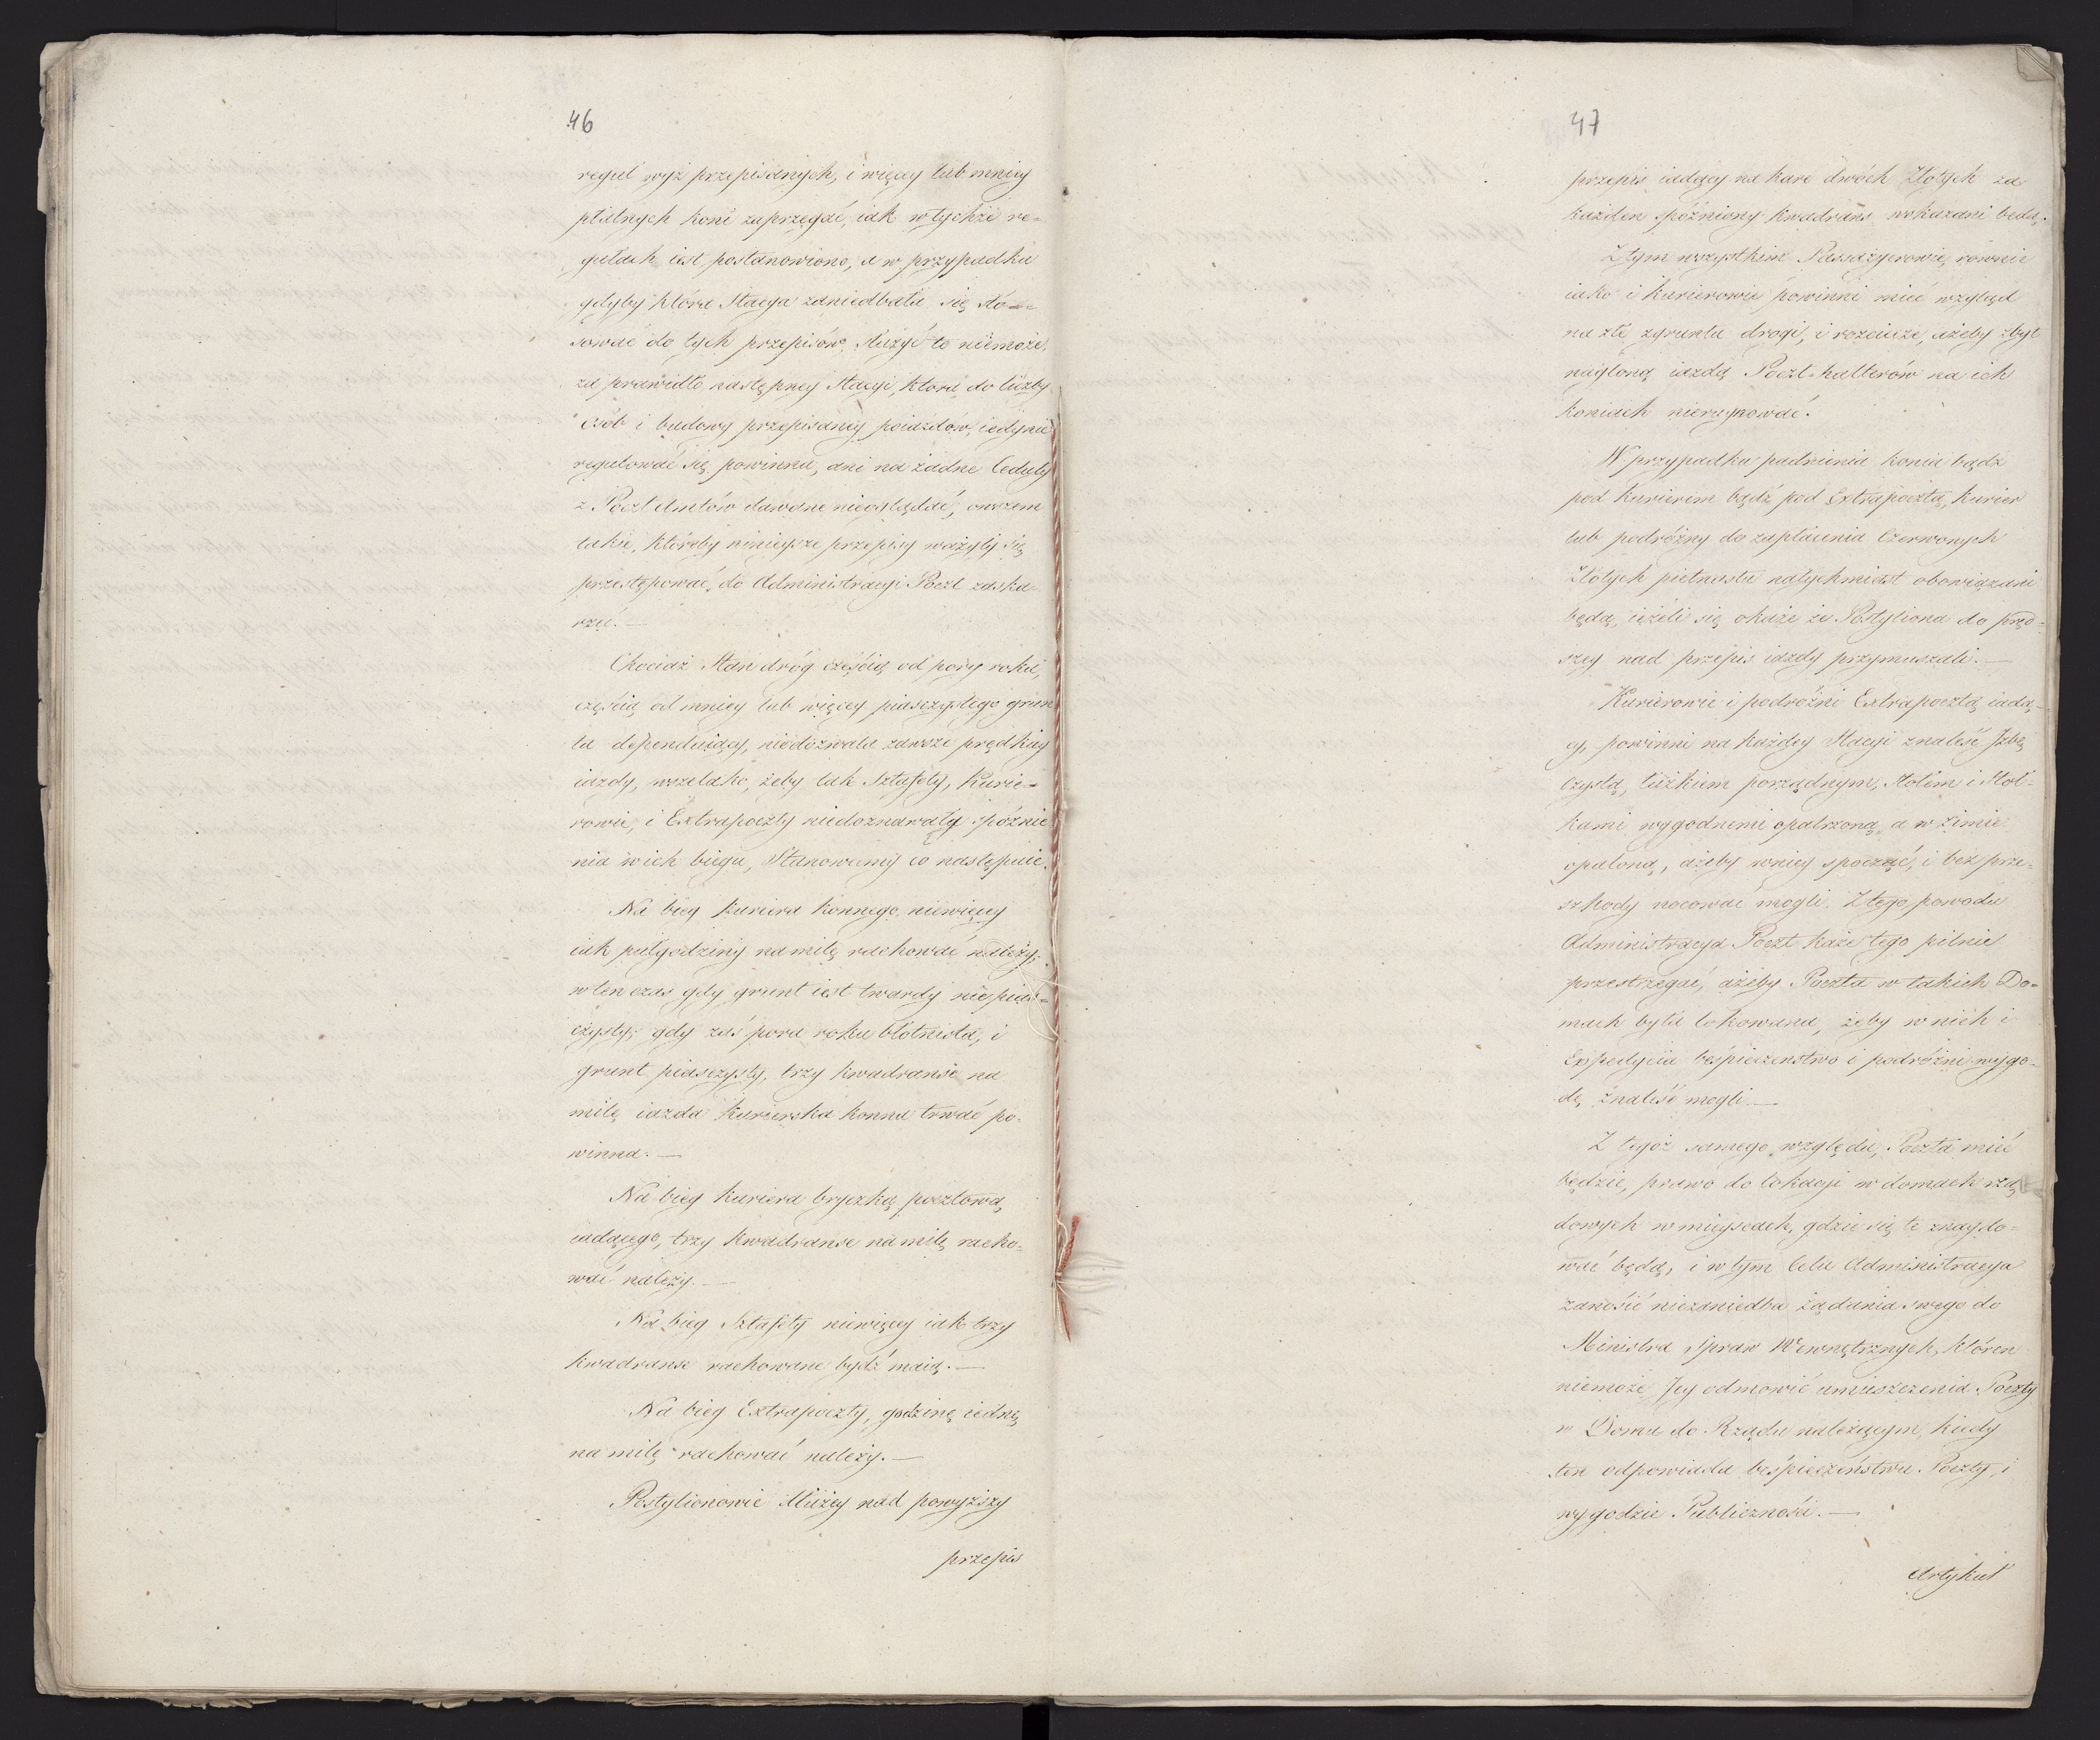 46
reguł wyż przepisanych, i więcey lub mniey
płatnych koni zaprzęgać, iak w tychże re=
gułach iest postanowiono, a w przypadku
gdyby która Stacya zaniedbała się sto=
sować do tych przepisów, służyć to niemoże,
za prawidło następney Stacyi, która do liczby
osób i budowy przepisaney poiazdów, iedynie
regulować się powinna, ani na żadne Ceduły
z Poczt Amtów dawane nieoglądać, owszem
takie, któreby ninieysze przepisy ważyły się
przestępować, do Administracyi Poczt zaska-
rżać. —
Chociaż Stan dróg częścią od pory roku,
częścią od mniey lub więcey piasczystego grun
tu dependuiący, niedozwala zawsze prędkiey
iazdy, wszelako, żeby tak Sztafety, Kurie=
rowie, i Extrapoczty niedoznawały spóźnie
nia w ich biegu, Stanowimy co następuie.
Na bieg Kuriera konnego, niewięcey
iak pułgodziny na milę rachować należy;
wten czas gdy grunt iest twardy nie pias=
czysty; gdy zaś pora roku błotnista, i
grunt piasczysty, trzy kwadranse na
milę iazda Kurierska konna trwać po-
winna. —
Na bieg Kuriera bryczką pocztową
iadącego, trzy kwadranse na milę racho=
wać należy. —
Na bieg Sztafety niewięcey iak trzy
kwadranse rachowane bydź maią. —
Na bieg Extrapoczty, godzinę iednę
na milę rachować należy. —
Postylionowie dłużey nad powyższy
przepis
47
przepis iadący na karę dwóch Złotych za
każden spóźniony kwadrans wskazani będą.
Z tym wszystkim Passażyerowie, równie
iako i Kurierowie powinni mieć wzgląd
na złe zgruntu drogi, i rozcieże, ażeby zbyt
nagloną iazdą Poczt-halterów na ich
koniach nierujnować.
W przypadku padnienia konia bądz
pod Kurierem bądź pod Extrapocztą, Kurier
lub podróżny do zapłacenia Czerwonych
Złotych pietnastu natychmiast obowiązani
będą, ieżeli się okaże że Postyliona do pręd=
szey nad przepis iazdy przymuszali. —
Kurierowie i podróżni Extrapocztą iadą-
cy, powinni na każdey Stacyi znaleść Izbę
Czystą, łóżkiem porządnym, stołem i stoł-
kami wygodnemi opatrzoną, a w zimie
opaloną, ażeby wniey spocząć, i bez prze-
szkody nocować mogli. Z tego powodu
Administracya Poczt każe tego pilnie
przestrzegać, ażeby Poczta w takich Do=
mach była lokowana, żeby w nich i
Expedycia beśpieczenstwo i podróżni wygo-
dę, znaleść mogli. —
Z tegóż samego względu, Poczta mieć
będzie, prawo do lokacyi w domach rzą
dowych w mieyscach, gdzie się te znaydo=
wać będą, i w tym Celu Administracya
zanosić niezaniedba żądania swego do
Ministra Spraw Wewnętrznych, któren
niemoże Jey odmówić umieszczenia Poczty
w Domu do Rządu należącym, kiedy
ten odpowiada beśpieczeństwu Poczty, i
wygodzie Publiczności. —
Artykuł